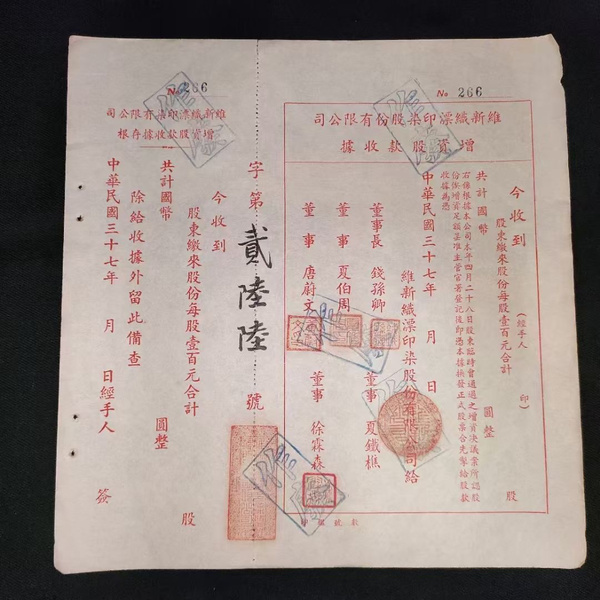 No 266
維新織漂印染股份有限公司
增資股款收據
今收到
股東繳來股份每股壹百元合計
股
共計國幣
圓整
(經手人 印)
右係根據本公司本年四月二十八日股東臨時會通過之增資決議案所認股
份俟增資足額呈准主管官署登記後即憑本據換發正式股票合先掣給股款
收據為憑
中華民國三十七年 月 日
維新織漂印染股份有限公司給
董事長 錢孫卿
董事 夏鐵樵
董事 夏伯周
董事 唐蔚文
董事 徐霖森
字第貳陸陸號
No 266
維新織漂印染有限公司
增資股款收據存根
今收到
股東繳來股份每股壹百元合計
股
共計國幣
圓整
除給收據外留此備查
中華民國三十七年 月 日經手人 簽